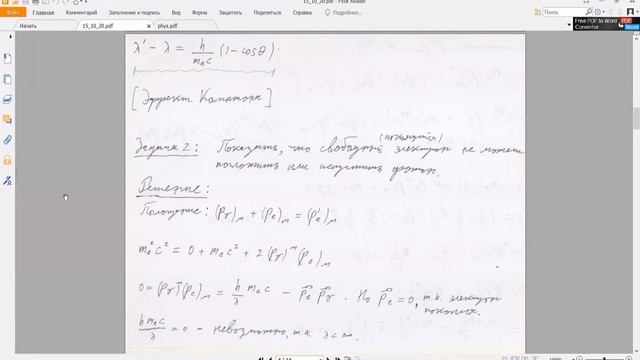 15_10_20.pdf - Foxit Reader
Главная Комментарий Защита Поделиться Справка Подробнее...
Начать 15_10_20.pdf phys.pdf
Free PDF to Word Converter
λ' − λ = h/(mₑc) (1 − cosθ).
[Эффект Комптона]
Задача 2: Показать, что свободный (покоящийся) электрон не может
поглотить или испустить фотон.
Решение:
Поглощение: (Pγ)μ + (Pe)μ = (P'e)μ
mₑ²c² = 0 + mₑc² + 2(Pγ)^μ(Pe)μ
0 = (Pγ)^μ(Pe)μ = h/λ mₑc − P⃗e P⃗γ. Но P⃗e = 0, т.к. электрон
покоится.
hmₑc/λ = 0 − невозможно, т.к. λ < ∞.